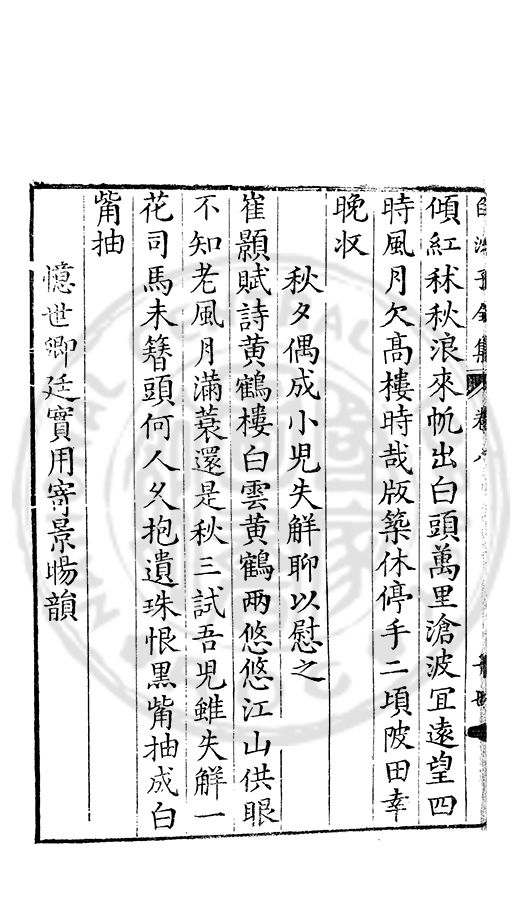 白沙子全集 卷八
傾紅秫秋浪來帆出白頭萬里滄波冝遠望四
時風月欠髙樓時哉版築休停手二頃陂田幸
晩收
秋夕偶成小児失觧聊以慰之
崔顥賦詩黄鶴樓白雲黄鶴兩悠悠江山供眼
不知老風月滿蓑還是秋三試吾児雖失觧一
花司馬未簮頭何人久抱遺珠恨黒觜抽成白
觜抽
憶世卿廷實用寄景暘韻